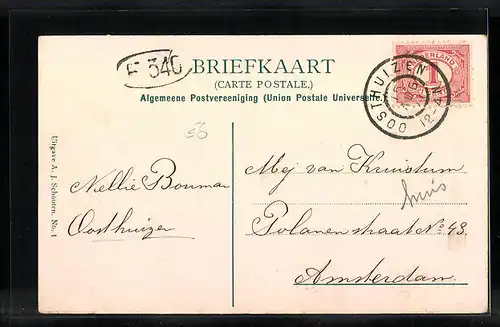 F 340
BRIEFKAART
(CARTE POSTALE.)
Algemeene Postvereeniging (Union Postale Universelle
NEDERLAND
1
OOSTHUIZEN
12-4N
Uitgave A. J. Schouten, Nb. 1
Nellie Bouman
Oosthuizen
Mej van Kruistum
huis
Polanenstraat No 43.
Amsterdam.